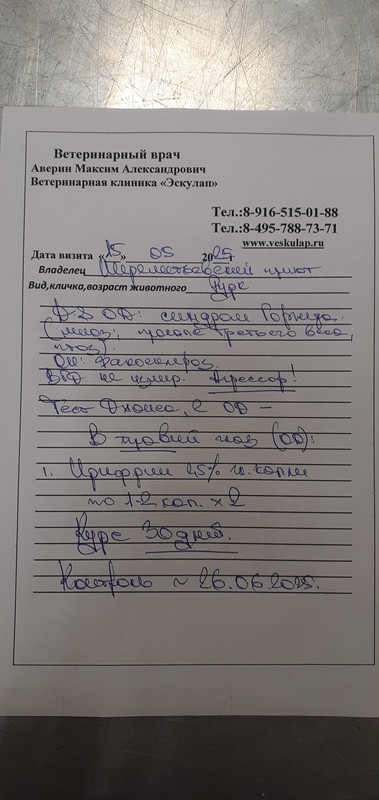 Ветеринарный врач
Аверин Максим Александрович
Ветеринарная клиника «Эскулап»
Тел.:8-916-515-01-88
Тел.:8-495-788-73-71
www.veskulap.ru
Дата визита «15» 05 2025г
Владелец Шереметьевский приют
Вид,кличка,возраст животного
D.S OD: синдром Горнера.
(миоз, пролапс третьего века,
птоз).
OU: факосклероз
ВГД не измер. Агрессор!
Тест Джонса, 2 OD –
В правый глаз (OD):
1. Ирифрин 2,5% гл. капли
по 1-2 кап. x 2
Курс 30 дней.
Контроль ~ 26.06.2025.